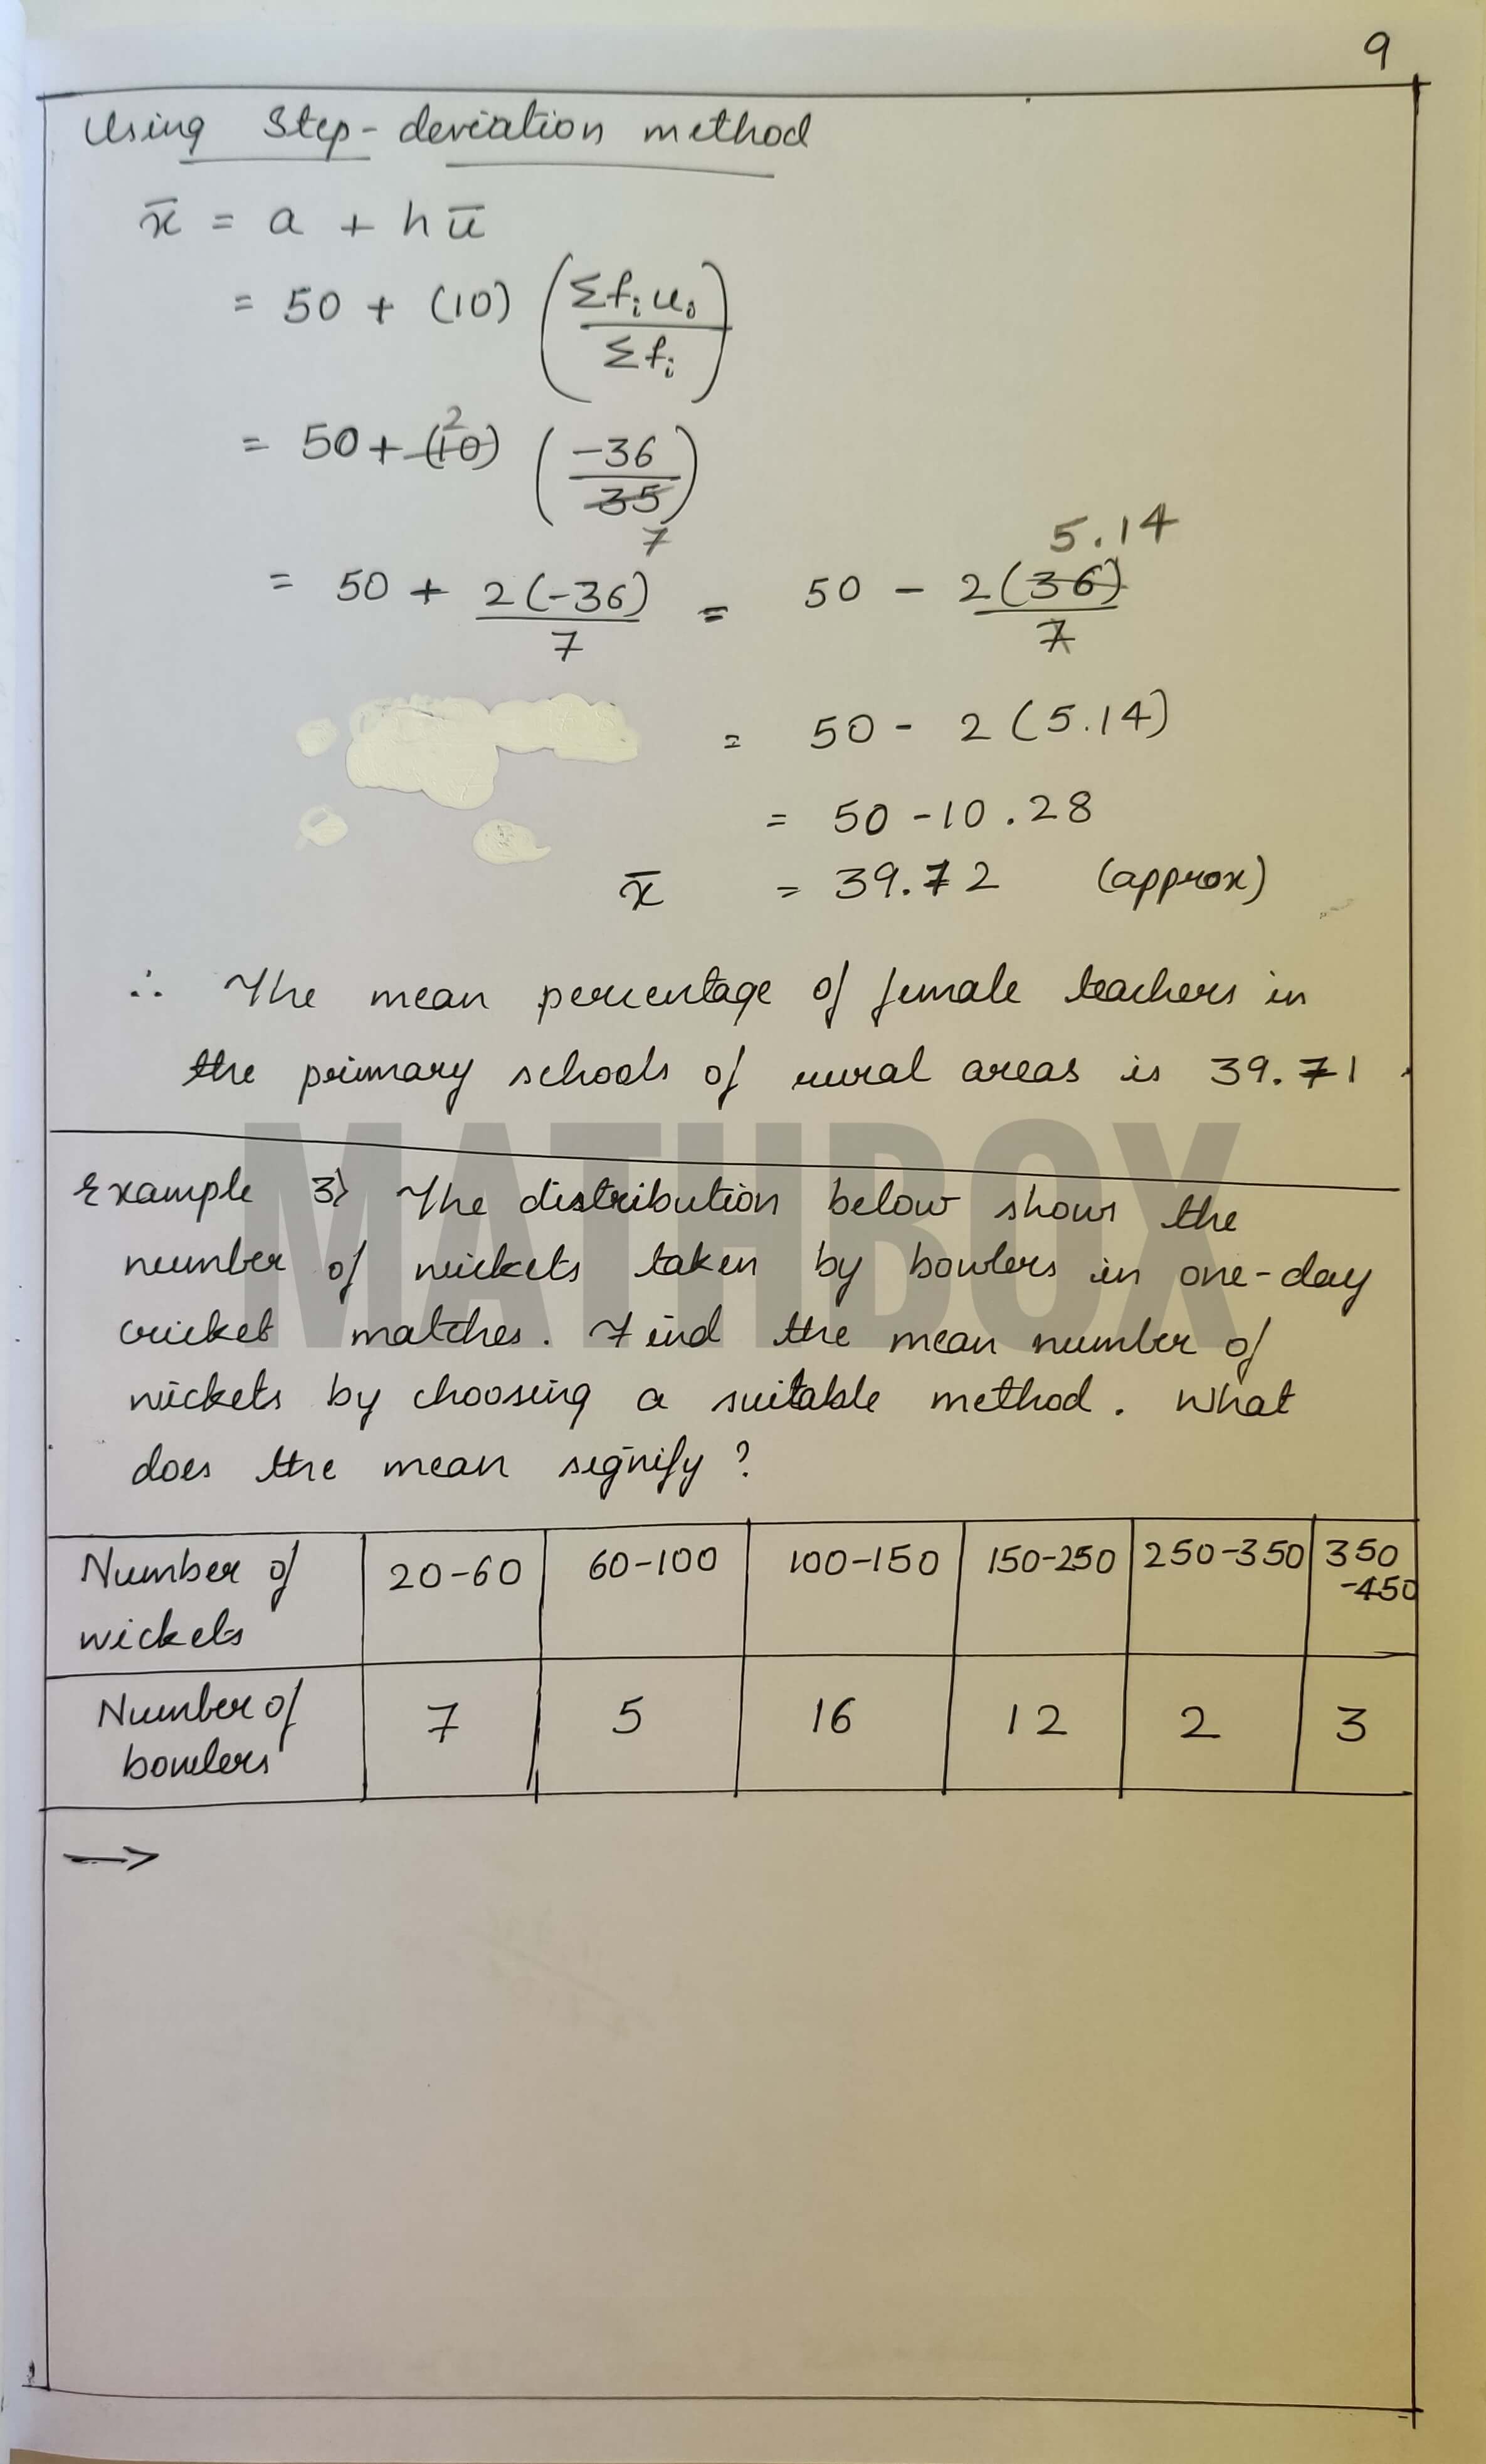 9
Using Step-deviation method
x̄ = a + hū
= 50 + (10) (Σfᵢuᵢ / Σfᵢ)
= 50 + (10) 2 (-36 / 35) 7
= 50 + 2(-36) / 7 = 50 - 2(36) / 7 5.14
= 50 - 2(5.14)
= 50 - 10.28
x̄ = 39.72 (approx)
∴ The mean percentage of female teachers in
the primary schools of rural areas is 39.71.
MATHBOX
Example 3) The distribution below shows the
number of wickets taken by bowlers in one-day
cricket matches. Find the mean number of
wickets by choosing a suitable method. What
does the mean signify?
Number of wickets 20-60 60-100 100-150 150-250 250-350 350-450
Number of bowlers 7 5 16 12 2 3
→